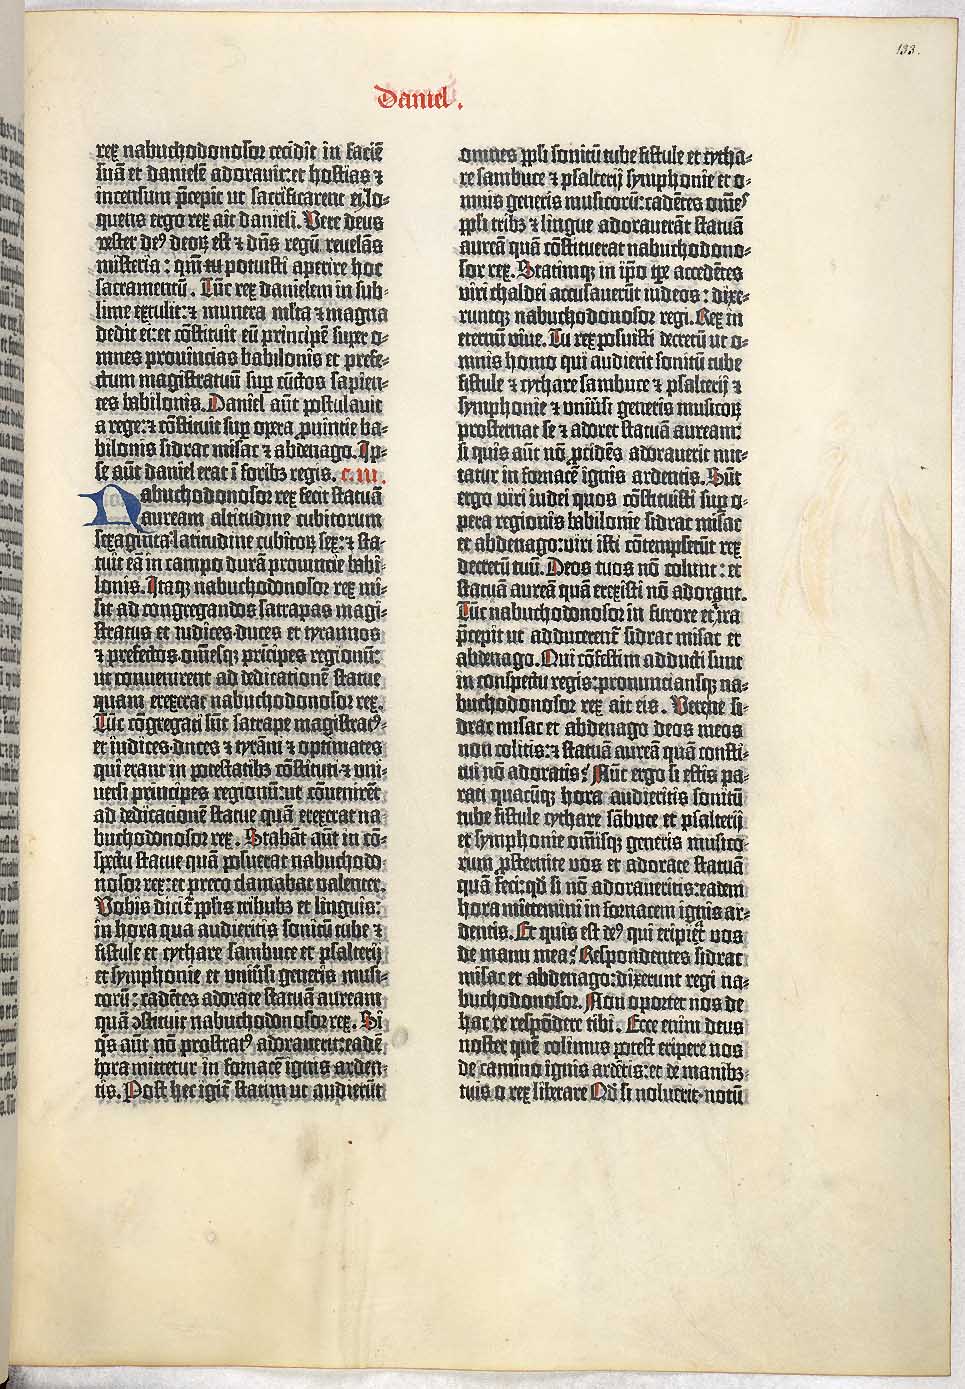 133.
Daniel.
rex nabuchodonosor cecidit in faciē
suā et danielē adoravit: et hostias ⁊
incensum p̄cepit ut sacrificarent ei. lo-
quens ergo rex ait danieli. Vere deus
vester deꝰ deoꝝ est ⁊ dn̄s regū revelās
misteria: qm̄ tu potuisti aperire hoc
sacramentū. Tūc rex danielem in sub-
lime extulit: ⁊ munera mlta ⁊ magna
dedit ei: et cōstituit eū principē super o-
mnes provincias babilonis et prefe-
ctum magistratuū sup cūctos sapien-
tes babilonis. Daniel aūt postulavit
a rege: ⁊ cōstituit sup opera ꝓvincie ba-
bilonis sidrac misac ⁊ abdenago. Ip-
se aūt daniel erat ī foribꝫ regis. c. III.
Nabuchodonosor rex fecit statuā
auream altitudine cubitorum
sexaginta latitudine cubitoꝝ sex: ⁊ sta-
tuit eā in campo durā provincie babi-
lonis. Itaqꝫ nabuchodonosor rex mi-
sit ad congregandos satrapas magi-
stratus et iudices duces et tyrannos
⁊ prefectos omēsqꝫ prīcipes regionū:
ut convenirent ad dedicationē statue
quam erexerat nabuchodonosor rex.
Tūc cōgregati sūt satrape magistratꝰ
et iudices duces ⁊ tyrāni ⁊ optimates
qui erant in potestatibꝫ cōstituti ⁊ uni-
versi principes regionū: ut cōvenirēt
ad dedicationē statue quā erexerat na
buchodonosor rex. Stabāt aūt in cō-
spectu statue quā posuerat nabuchodo
nosor rex: et preco clamabat valenter.
Vobis dicit̄ pplis tribubꝫ et linguis:
in hora qua audieritis sonitū tube ⁊
fistule et cythare sambuce et psalterij
et symphonie et univ̄si generis musi-
corū: cadētes adorate statuā auream
quā ꝯstituit nabuchodonosor rex. Si
q̄s aūt nō prostratꝰ adoraverit: eadē
hora mittetur in fornacē ignis arden-
tis. Post hec igit̄ statim ut audierūt
omnes ppli sonitū tube fistule et cytha-
re sambuce ⁊ psalterij symphonie et o-
mnis generis musicorū: cadētes omēs
ppli tribꝫ ⁊ lingue adoraverāt statuā
aureā quā cōstituerat nabuchodono-
sor rex. Statimqꝫ in ip̄o tpe accedētes
viri chaldei accusaverūt iudeos: dixe-
runtqꝫ nabuchodonosor regi. Rex in
eternū vive. Tu rex posuisti decretū ut o-
mnis homo qui audierit sonitū tube
fistule ⁊ cythare sambuce ⁊ psalterij ⁊
symphonie ⁊ univ̄si generis musicoꝝ
prosternat se ⁊ adoret statuā auream:
si quis aūt nō ꝓcidēs adoraverit mit-
tatur in fornacē ignis ardentis. Sūt
ergo viri iudei quos cōstituisti sup o-
pera regionis babilonie sidrac misac
et abdenago: viri isti cōtempserūt rex
decretū tuū. Deos tuos nō colunt: et
statuā aureā quā erexisti nō adorant.
Tūc nabuchodonosor in furore et ira
p̄cepit ut adducerent̄ sidrac misac et
abdenago. Qui cōfestim adducti sunt
in conspectu regis: pronunciansqꝫ na-
buchodonosor rex ait eis. Verene si-
drac misac et abdenago deos meos
non colitis: ⁊ statuā aureā quā consti-
tui nō adoratis? Nūc ergo si estis pa-
rati quacūqꝫ hora audieritis sonitū
tube fistule cythare sābuce et psalterij
et symphonie omīsqꝫ generis musico
rum ꝓsternite vos et adorate statuā
quā feci: qd̄ si nō adoraveritis: eadem
hora mittemini in fornacem ignis ar-
dentis. Et quis est deꝰ qui eripiet vos
de manu mea? Respondentes sidrac
misac et abdenago: dixerunt regi na-
buchodonosor. Non oportet nos de
hac re respōdere tibi. Ecce enim deus
noster quē colimus potest eripere nos
de camino ignis ardētis: et de manibꝫ
tuis o rex liberare Qd̄ si noluerit: notū